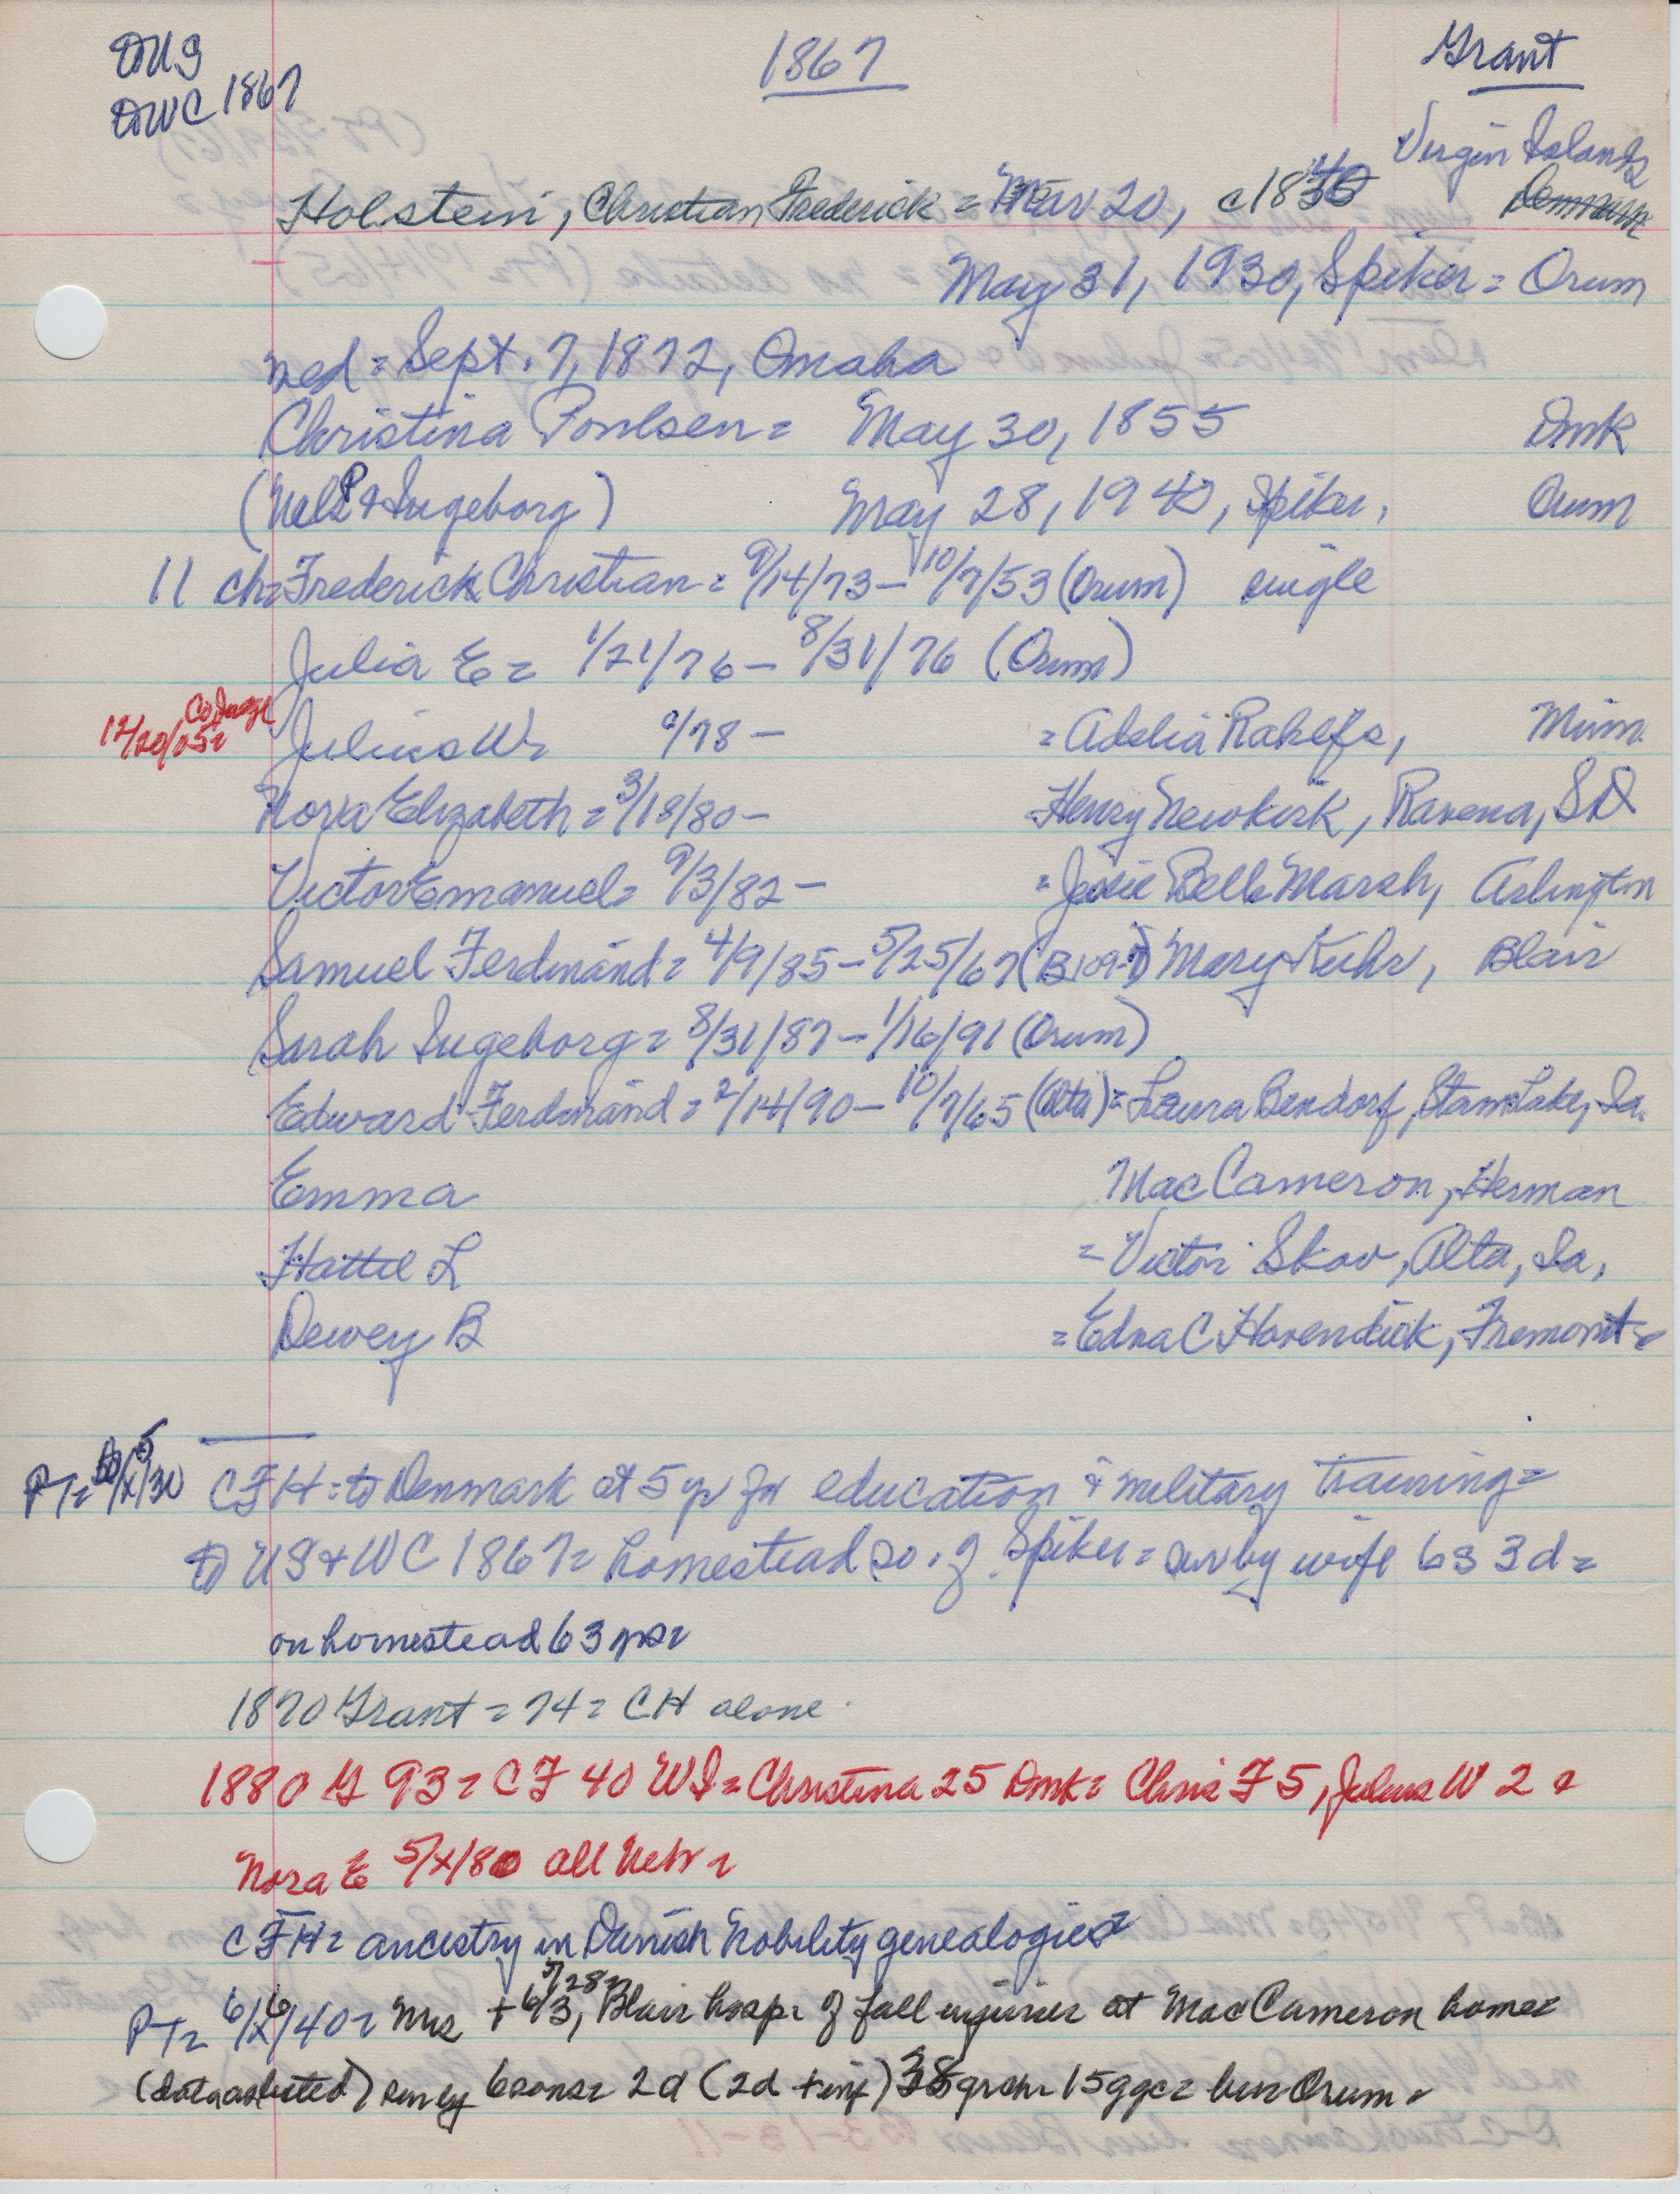 DUS 1867 Grant
DWC 1867
Virgin Islands
Holstein, Christian Frederick = Mar 20, c1840 Denmark
May 31, 1930, Spiker = Orum
med = Sept. 7, 1872, Omaha
Christina Poulsen = May 30, 1855 Dmk
(Nels P + Ingeborg) May 28, 1940, Spiker, Orum
11 ch = Frederick Christian = 9/14/73 – 10/7/53 (Orum) single
Julia E = 1/21/76 – 8/31/76 (Orum)
12/20/05 = Co Judge Julius W = /78 – = Adelia Rahlfs, Minn.
Nora Elizabeth = 3/18/80 – Henry Newkirk, Ravena, SD
Victor Emanuel = 9/3/82 – = Jessie Bell Marsh, Arlington
Samuel Ferdinand = 4/9/85 – 5/25/67 (B109-7) Mary Kuhr, Blair
Sarah Ingeborg = 8/31/87 – 1/16/91 (Orum)
Edward Ferdinand = 2/14/90 – 10/7/65 (Alta) = Laura Bendorf, Storm Lake, Ia.
Emma Mac Cameron, Herman
Hattie L = Victor Skov, Alta, Ia,
Dewey B = Edna C Havendick, Fremont =
PT = /x/30 CFH = to Denmark at 5 yr for education & military training =
to US + WC 1867 = homestead so. of Spiker = surv by wife 6s 3d =
on homestead 63 yrs =
1870 Grant = 74 = CH alone
1880 G 93 = CF 40 WI = Christina 25 Dmk = Chris F 5, Julius W 2 =
Nora E 5/x/80 all Nebr =
CFH = ancestry in Danish Nobility genealogies =
5/28 =
PT = 6/6/40 = Mrs + 6/3, Blair hosp = of fall injuries at Mac Cameron home =
(data as listed) surv by 6 sons = 2d (2d + inf) 38 grch = 15 ggc = bur Orum =